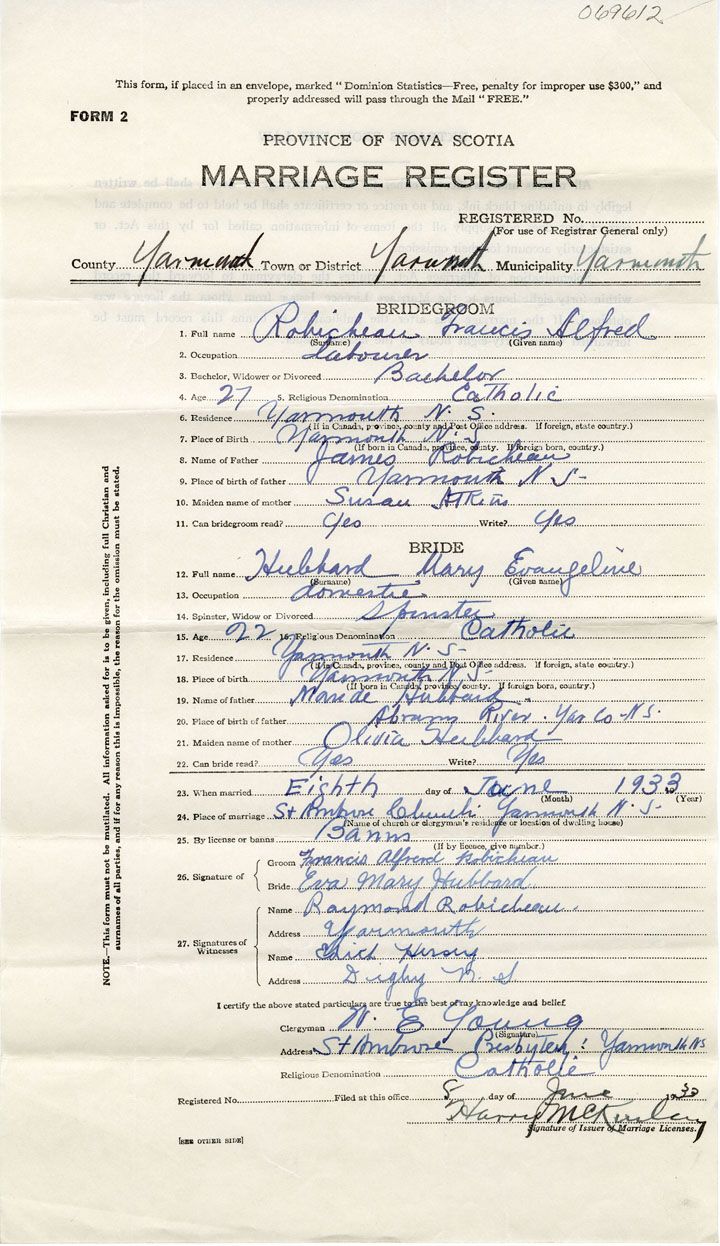 069612
This form, if placed in an envelope, marked "Dominion Statistics—Free, penalty for improper use $300," and
properly addressed will pass through the Mail "FREE."
FORM 2
PROVINCE OF NOVA SCOTIA
MARRIAGE REGISTER
REGISTERED No.
(For use of Registrar General only)
County Yarmouth Town or District Yarmouth Municipality Yarmouth
BRIDEGROOM
1. Full name Robicheau Francis Alfred
(Surname) (Given name)
2. Occupation Labourer
3. Bachelor, Widower or Divorced Bachelor
4. Age 27 5. Religious Denomination Catholic
6. Residence Yarmouth N. S.
(If in Canada, province, county and Post Office address. If foreign, state country.)
7. Place of Birth Yarmouth N. S.
(If born in Canada, province, county. If foreign born, country.)
8. Name of Father James Robicheau
9. Place of birth of father Yarmouth N S-
10. Maiden name of mother Susan Atkins
11. Can bridegroom read? Yes Write? Yes
BRIDE
12. Full name Hubbard Mary Evangeline
(Surname) (Given name)
13. Occupation domestic
14. Spinster, Widow or Divorced Spinster
15. Age 22 16. Religious Denomination Catholic
17. Residence Yarmouth N. S-
(If in Canada, province, county and Post Office address. If foreign, state country.)
18. Place of birth Yarmouth N. S-
(If born in Canada, province, county. If foreign born, country.)
19. Name of father Hubbard
20. Place of birth of father Abrams River. Yar Co N.S.
21. Maiden name of mother Olivia Hubbard
22. Can bride read? Yes Write? Yes
23. When married Eighth day of June 1933
(Month) (Year)
24. Place of marriage St Ambrose Church Yarmouth N. S-
(Name of church or clergyman's residence or location of dwelling house)
25. By license or banns Banns
(If by license, give number.)
26. Signature of
Groom Francis Alfred Robicheau
Bride Eva Mary Hubbard
27. Signatures of Witnesses
Name Raymond Robicheau
Address Yarmouth
Name Hersey
Address Digby N. S
I certify the above stated particulars are true to the best of my knowledge and belief.
Clergyman W. E Young
(Signature)
Address St Ambrose Presbytery: Yarmouth NS
Religious Denomination Catholic
Registered No. Filed at this office 8 day of June 1933
Harry McKinley
Signature of Issuer of Marriage Licenses.
[SEE OTHER SIDE]
NOTE.—This form must not be mutilated. All information asked for is to be given, including full Christian and
surnames of all parties, and if for any reason this is impossible, the reason for the omission must be stated.